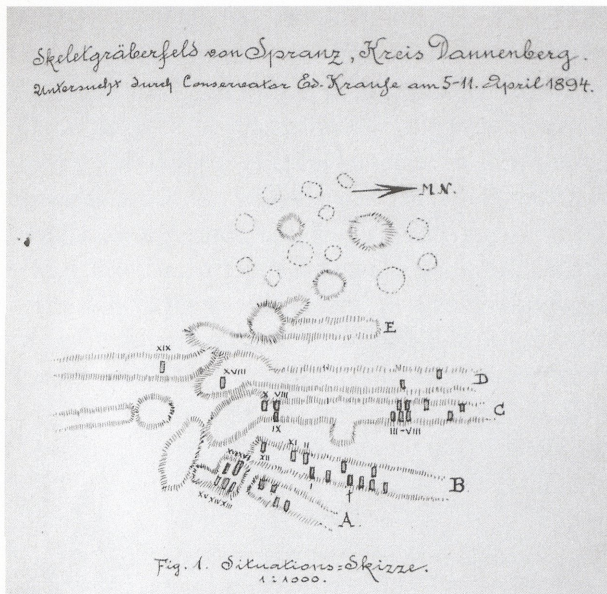 Skeletgräberfeld von Spranz, Kreis Dannenberg.
Untersucht durch Conservator Ed. Krause am 5-11. April 1894.
M.N.
E
XIX
XVIII
D
X VIII
C
IX
III-VIII
XI II
XII
B
I
A.
Fig. 1. Situations=Skizze.
1:1000.